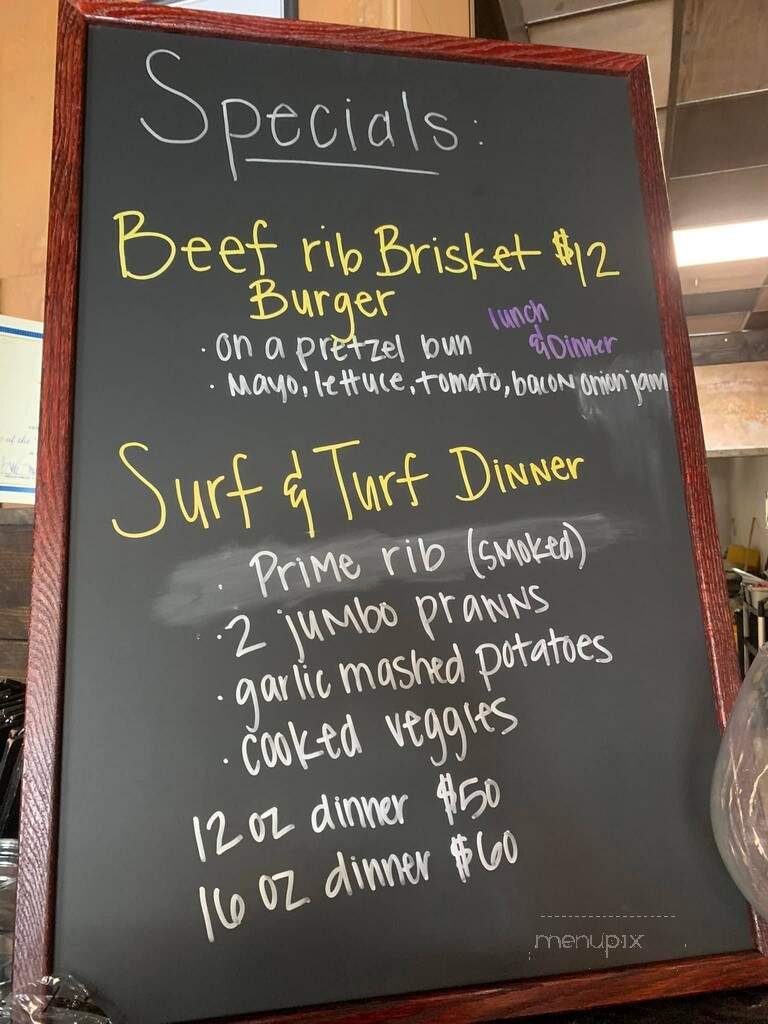 Specials:
Beef rib Brisket $12
Burger
lunch
& Dinner
· on a pretzel bun
· Mayo, lettuce, tomato, bacon onion jam
Surf & Turf Dinner
· Prime rib (smoked)
· 2 jumbo prawns
· garlic mashed potatoes
· cooked veggies
12 oz dinner $50
16 oz dinner $60
menupix